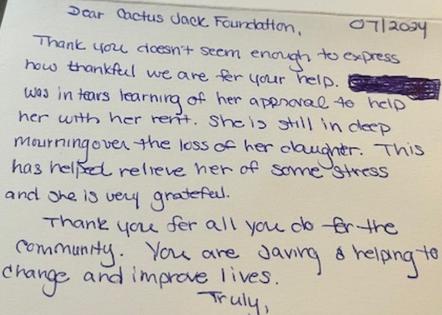 Dear Cactus Jack Foundation, 07/2024
Thank you doesn't seem enough to express
how thankful we are for your help.
was in tears learning of her approval to help
her with her rent. She is still in deep
mourning over the loss of her daughter. This
has helped relieve her of some stress
and she is very grateful.
Thank you for all you do for the
community. You are saving & helping to
change and improve lives.
Truly,